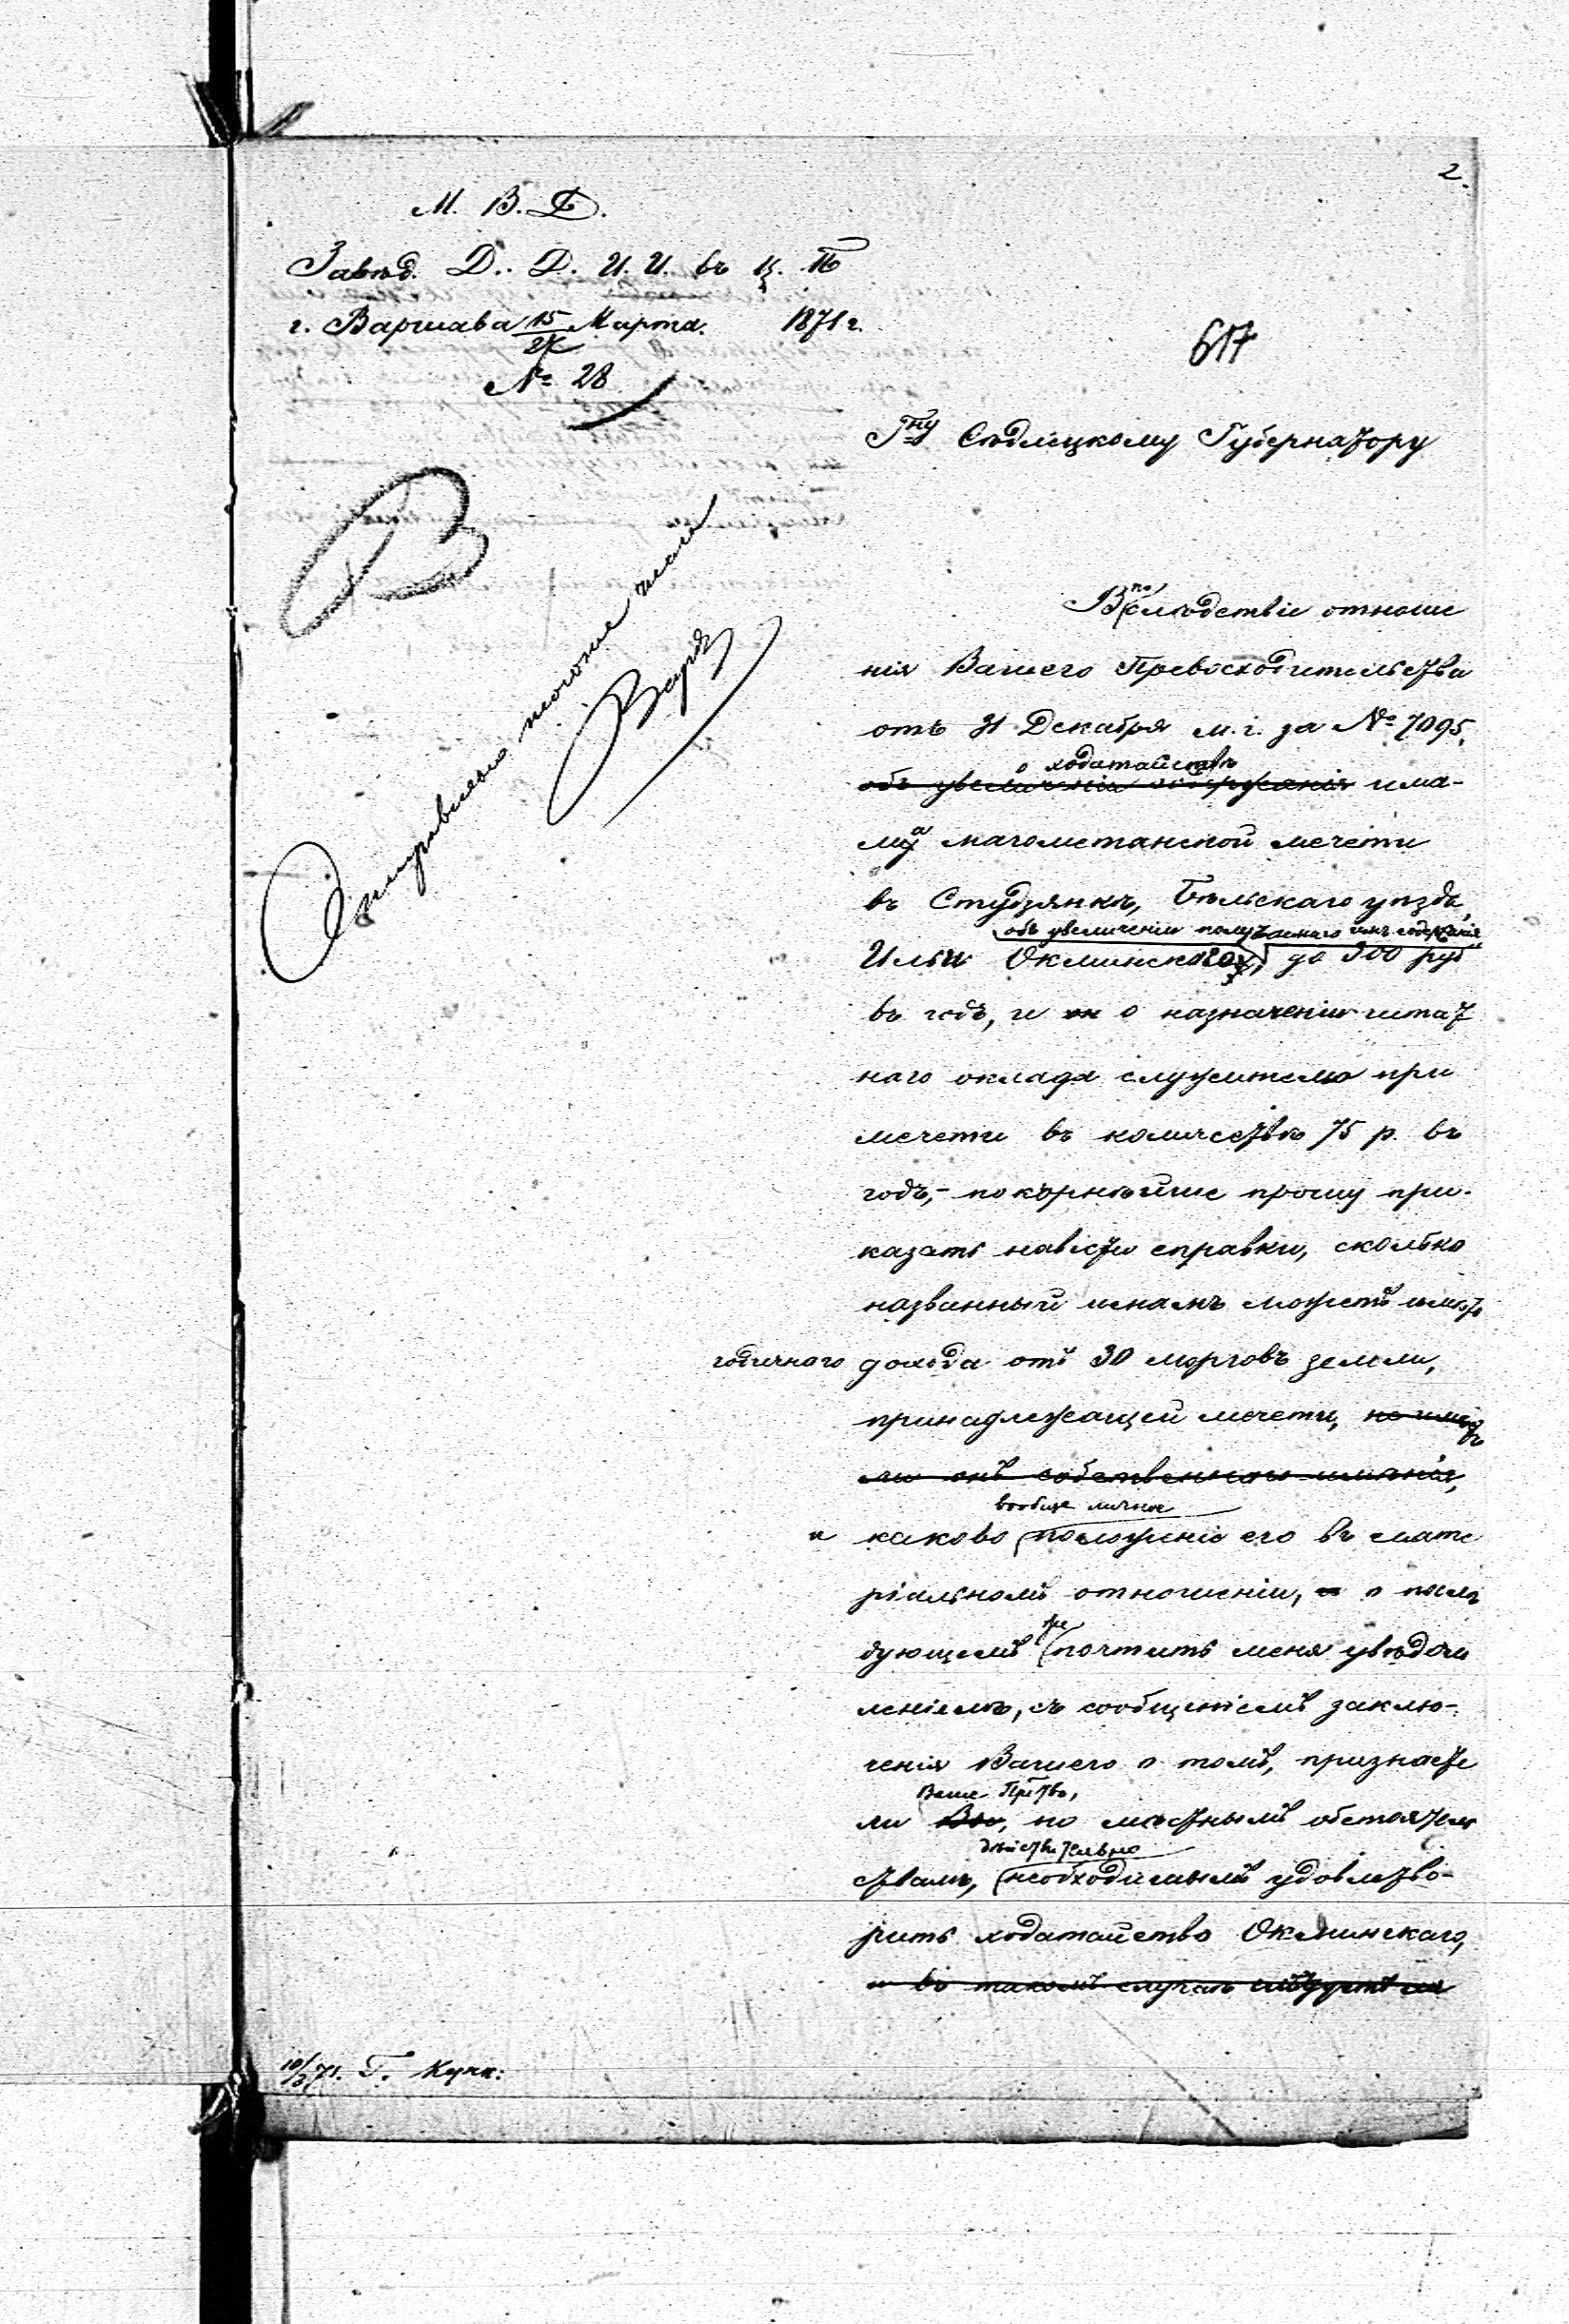 2.
М. В. Д.
Завѣд. Д. Д. И. И. въ Ц. П.
г. Варшава 15/27 Марта 1871 г.
№ 28
617
Гну Сѣдлецкому Губернатору
В
Вслѣдствіе отноше
нія Вашего Превосходительства
отъ 31 Декабря м. г. за № 7095,
о ходатайствѣ
объ увеличеніи содержанія има-
ма магометанской мечети
въ Студзянкѣ, Бѣльскаго уѣзда,
объ увеличеніи получаемаго имъ содержанія
Ильи Окминскаго, до 300 руб
въ годъ, и о назначеніи штат
наго оклада служителю при
мечети въ количествѣ 75 р. въ
годъ,- покорнѣйше прошу при-
казать навести справки, сколько
названный имамъ можетъ имѣть
годичнаго дохода отъ 30 морговъ земли,
принадлежащей мечети, не имѣетъ
ли онъ собственнаго имѣнія,
вообще личное
и каково положеніе его въ мате
ріальномъ отношеніи, о послѣ
дующемъ почтить меня увѣдом
леніемъ, съ сообщеніемъ заклю-
ченія Вашего о томъ, признаете
Ваше Прство,
ли Вы, по мѣстнымъ обстоятель
дѣйствительно
ствамъ, необходимымъ удовлетво-
рить ходатайство Окминскаго,
и въ такомъ случаѣ слѣдуетъ ли
10/3 71. Г. Кунк: